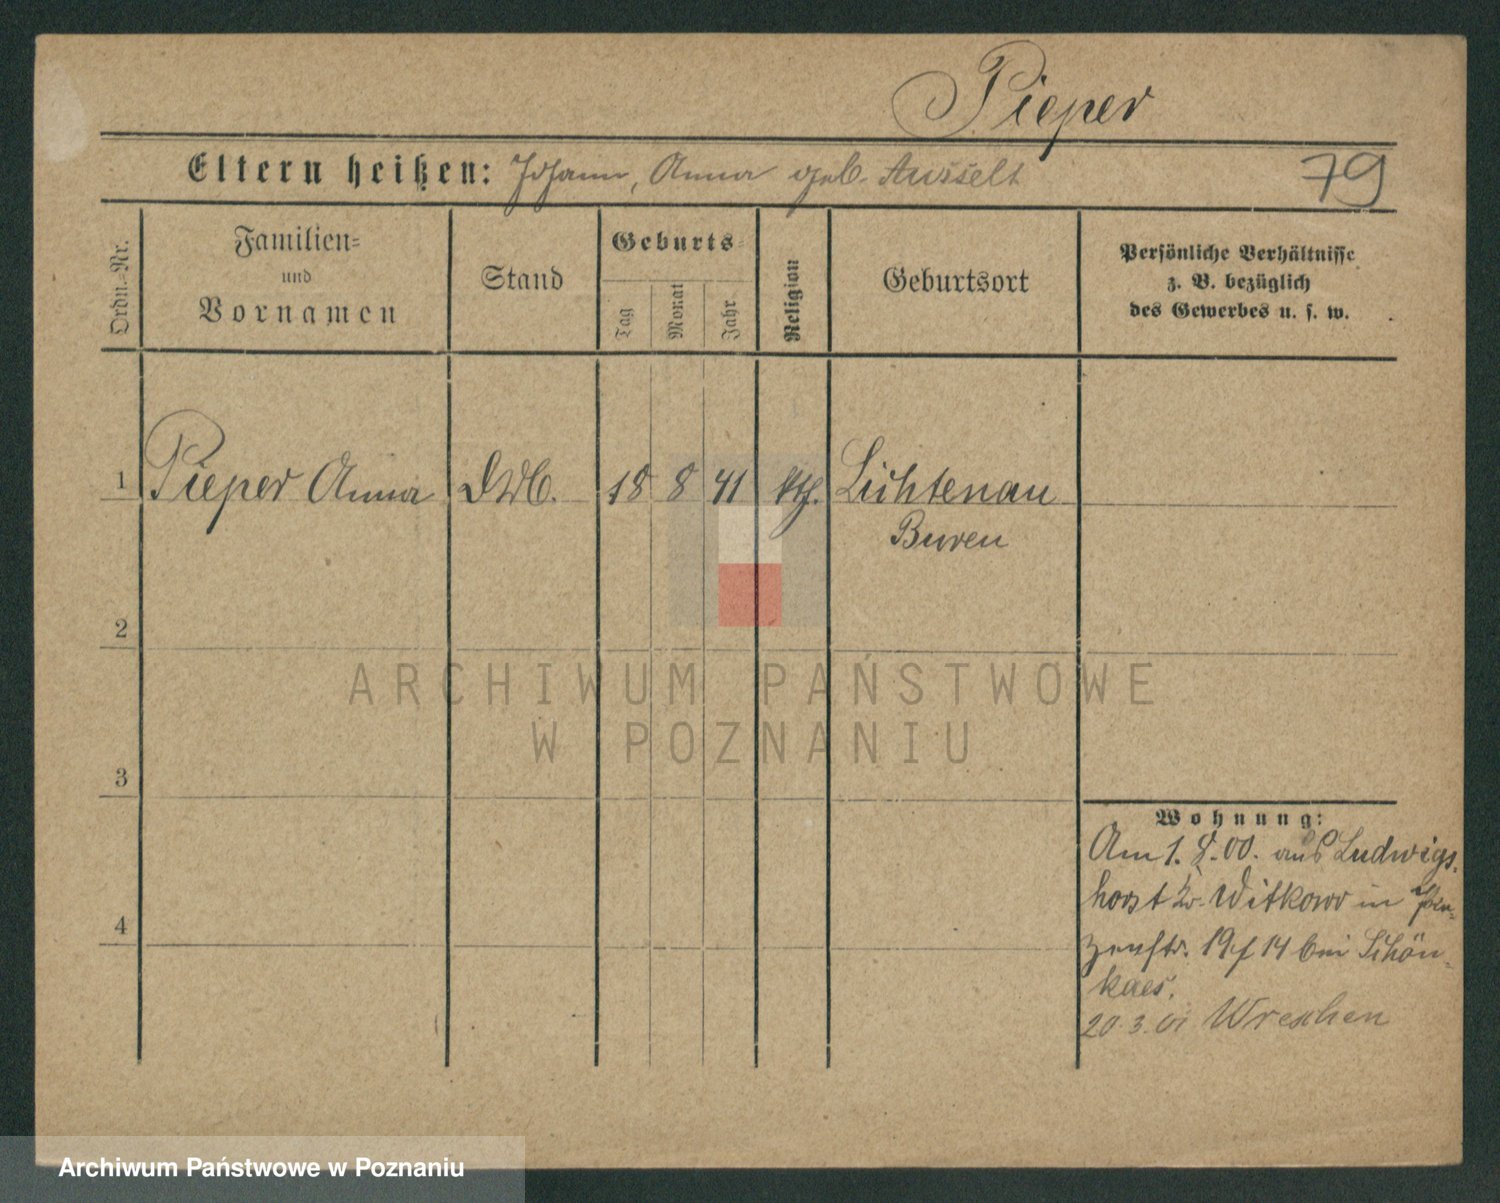 Pieper
Eltern heißen: Johann, Anna geb. Ausselt
79
Ordn.-Nr.
Familien-
und
Vornamen
Stand
Geburts-
Tag
Monat
Jahr
Religion
Geburtsort
Persönliche Verhältnisse
z. B. bezüglich
des Gewerbes u. s. w.
1 Pieper Anna 18 8 41 kth. Lichtenau
Buren
2
3
4
Wohnung:
Am 1. 8. 00. aus Ludwigs-
horst Kr. Witkowo in
19 14 bei Schön-
kaes.
20.3.01 Wreschen
ARCHIWUM PAŃSTWOWE
W POZNANIU
Archiwum Państwowe w Poznaniu